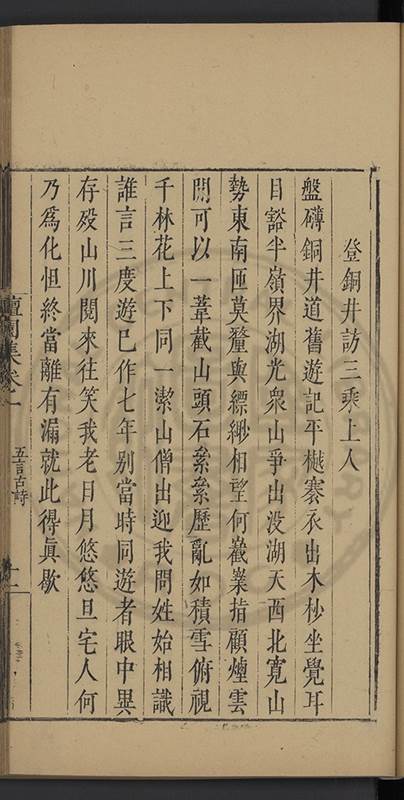 登銅井訪三乘上人
盤礴銅井道舊遊記平樾褰衣出木杪坐覺耳
目豁半嶺界湖光衆山爭出没湖天西北寬山
勢東南匝莫釐與縹緲相望何嶻業指顧煙雲
閒可以一葦截山頭石纍纍歷亂如積雪俯視
千林花上下同一潔山僧出迎我問姓始相識
誰言三度遊已作七年别當時同遊者眼中異
存殁山川閱來往笑我老日月悠悠旦宅人何
乃爲化怛終當離有漏就此得眞歇
檀園集卷一
五言古詩
十一